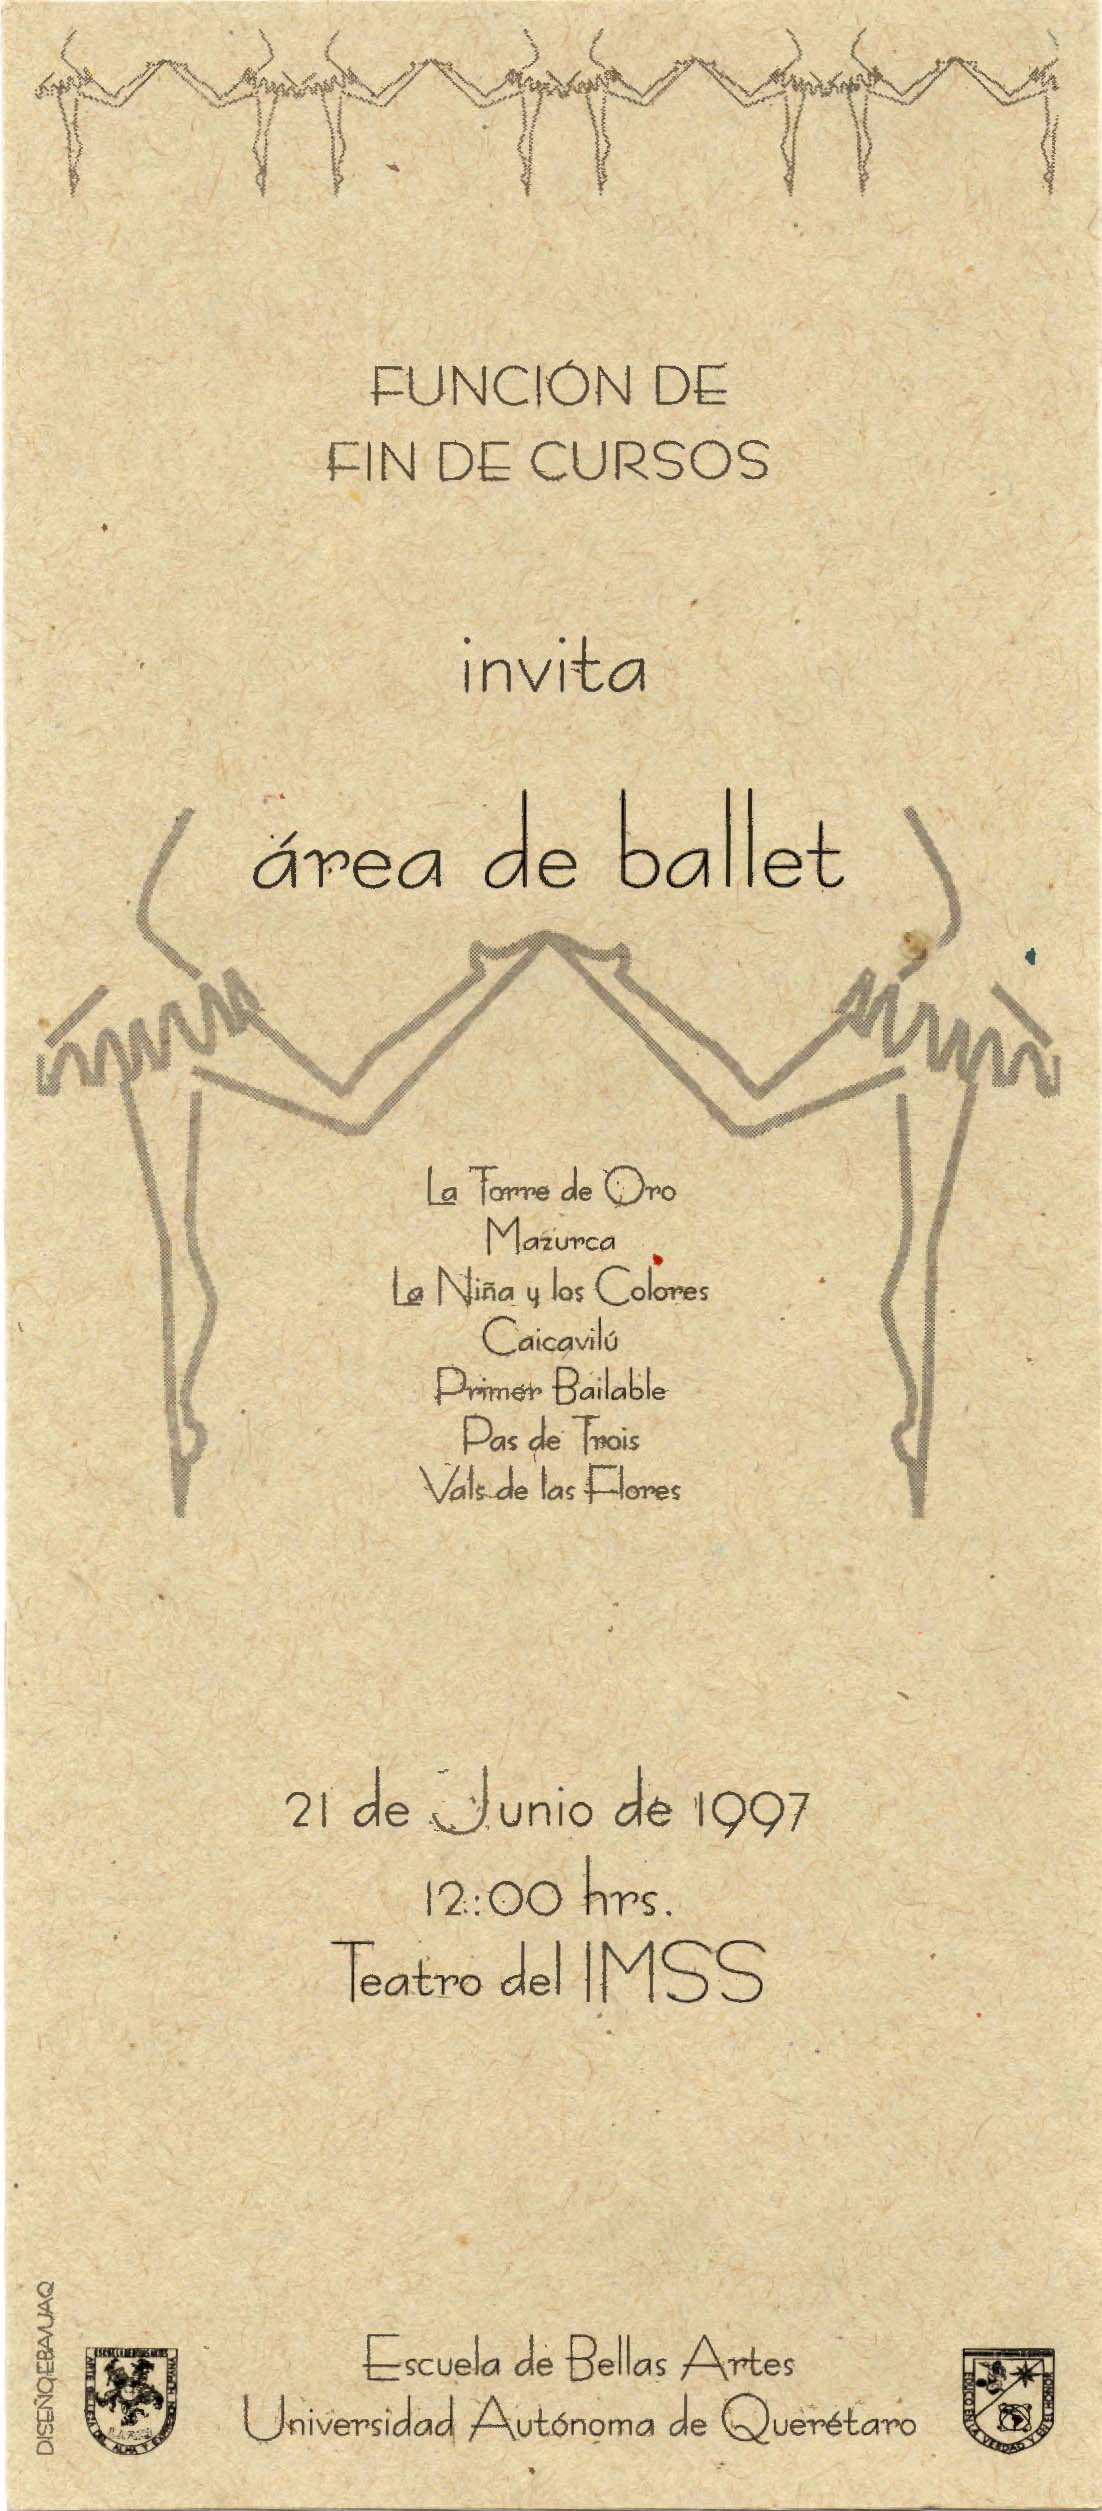 FUNCIÓN DE
FIN DE CURSOS
invita
área de ballet
La Torre de Oro
Mazurca
La Niña y los Colores
Caicavilú
Primer Bailable
Pas de Trois
Vals de las Flores
21 de Junio de 1997
12:00 hrs.
Teatro del IMSS
DISEÑO,EBA/UAQ
Escuela de Bellas Artes
Universidad Autónoma de Querétaro
EDUCO EN LA VERDAD Y EN EL HONOR